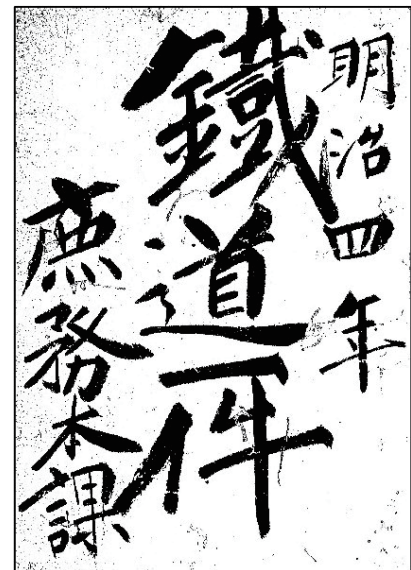 明治四年
鐵道一件
庶務本課